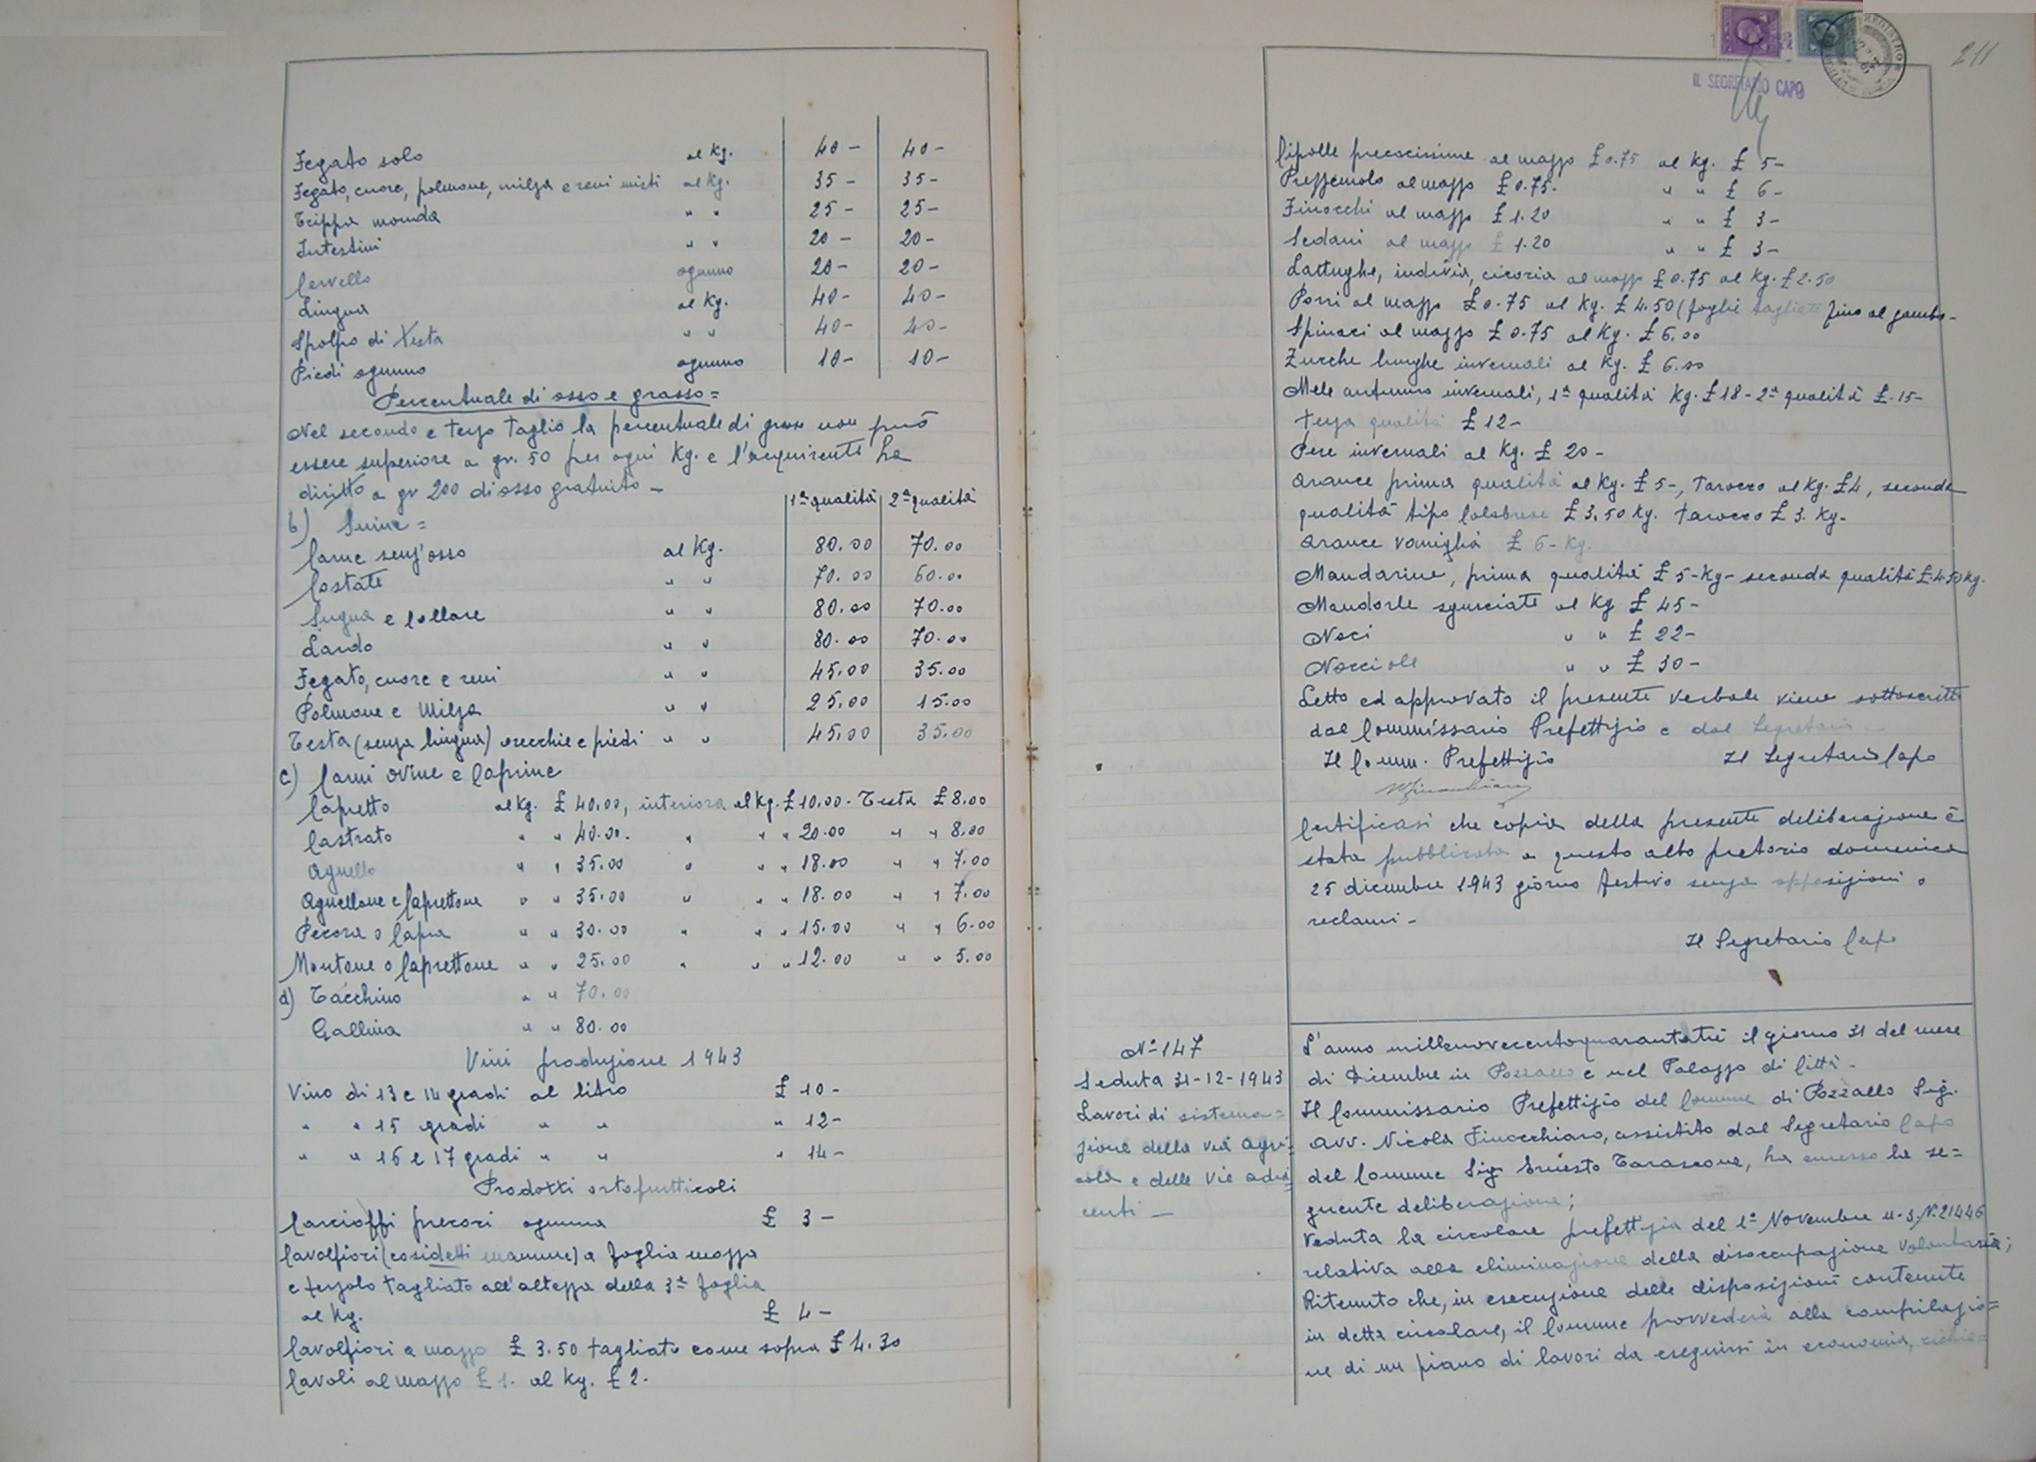 Fegato solo al Kg. 40- 40-
Fegato, cuore, polmone, milza e reni misti al Kg. 35- 35-
Trippa monda " " 25- 25-
Intestini " " 20- 20-
Cervello ognuno 20- 20-
Lingua al Kg. 40- 40-
Spolpo di Testa " " 40- 40-
Piedi ognuno ognuno 10- 10-
Percentuale di osso e grasso=
Nel secondo e terzo taglio la percentuale di grasso non può
essere superiore a gr. 50 per ogni Kg. e l'acquirente ha
diritto a gr 200 di osso gratuito -
1ª qualità 2ª qualità
b) Suine =
Carne senz'osso al Kg. 80.00 70.00
Costate " " 70.00 60.00
Sugna e Collare " " 80.00 70.00
Lardo " " 80.00 70.00
Fegato, cuore e reni " " 45.00 35.00
Polmone e Milza " " 25.00 15.00
Testa (senza lingua) orecchie e piedi " " 45.00 35.00
c) Carni ovine e Caprine
Capretto al Kg. £ 40.00, interiora al Kg. £ 10.00- Testa £ 8.00
Castrato " " 40.00. " " " 20.00 " " 8.00
Agnello " " 35.00 " " " 18.00 " " 7.00
Agnellone e Caprettone " " 35.00 " " " 18.00 " " 7.00
Pecora o Capra " " 30.00 " " " 15.00 " " 6.00
Montone o Caprettone " " 25.00 " " " 12.00 " " 5.00
d) Tacchino " " 70.00
Gallina " " 80.00
Vini produzione 1943
Vino di 13 e 14 gradi al litro £ 10-
" " 15 gradi " " " 12-
" " 16 e 17 gradi " " " 14-
Prodotti ortofrutticoli
Carcioffi precoci ognuno £ 3-
Cavolfiori (cosidetti mamme) a foglia mozza
e torzolo tagliato all'altezza della 3ª foglia
al Kg. £ 4-
Cavolfiori a mazzo £ 3.50 tagliato come sopra £ 4.30
Cavoli al mazzo £ 1. al Kg. £ 2.
211
IL SEGRETARIO CAPO
Cipolle precocissime al mazzo £ 0.75 al Kg. £ 5-
Prezzemolo al mazzo £ 0.75- " " £ 6-
Finocchi al mazzo £ 1.20 " " £ 3-
Sedani al mazzo £ 1.20 " " £ 3-
Lattughe, indivia, cicoria al mazzo £ 0.75 al Kg. £ 2.50
Porri al mazzo £ 0.75 al Kg. £ 4.50 (foglie tagliate fino al gambo-
Spinaci al mazzo £ 0.75 al Kg. £ 6.00
Zucche lunghe invernali al Kg. £ 6.00
Mele autunno invernali, 1ª qualità Kg. £ 18- 2ª qualità £. 15-
terza qualità £ 12-
Pere invernali al Kg. £ 20-
Arance prima qualità al Kg. £ 5-, Tarocco al Kg. £ 4, seconda
qualità tipo Calabrese £ 3.50 Kg. Tarocco £ 3. Kg-
Arance vaniglia £ 6- Kg.
Mandarine, prima qualità £ 5- Kg- seconda qualità £. 4.50 Kg.
Mandorle sgusciate al Kg £ 45-
Noci " " £ 22-
Nocciole " " £ 30-
Letto ed approvato il presente verbale viene sottoscritto
dal Commissario Prefettizio e dal Segretario -
Il Comm. Prefettizio Il Segretario Capo
Certificasi che copia della presente deliberazione è
stata pubblicata a questo albo pretorio domenica
25 dicembre 1943 giorno festivo senza opposizioni o
reclami -
Il Segretario Capo
N° 147
Seduta 31-12-1943
Lavori di sistema=
zione della via Agri=
cola e delle Vie adia=
centi -
L'anno millenovecentoquarantatrè il giorno 31 del mese
di Dicembre in Pozzallo e nel Palazzo di Città -
Il Commissario Prefettizio del Comune di Pozzallo Sig.
Avv. Nicola Finocchiaro, assistito dal Segretario Capo
del Comune Sig. Ernesto Tarascone, ha emesso la se=
guente deliberazione;
Veduta la circolare prefettizia del 1° Novembre u.s. N. 21446
relativa alla eliminazione della disoccupazione volontaria;
Ritenuto che, in esecuzione delle disposizioni contenute
in detta circolare, il Comune provvederà alla compilazio=
ne di un piano di lavori da eseguirsi in economia,